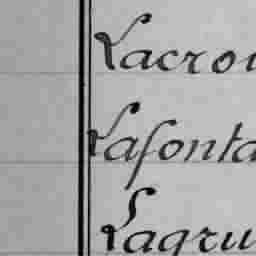 Lacroi
Lafonta
Lagru